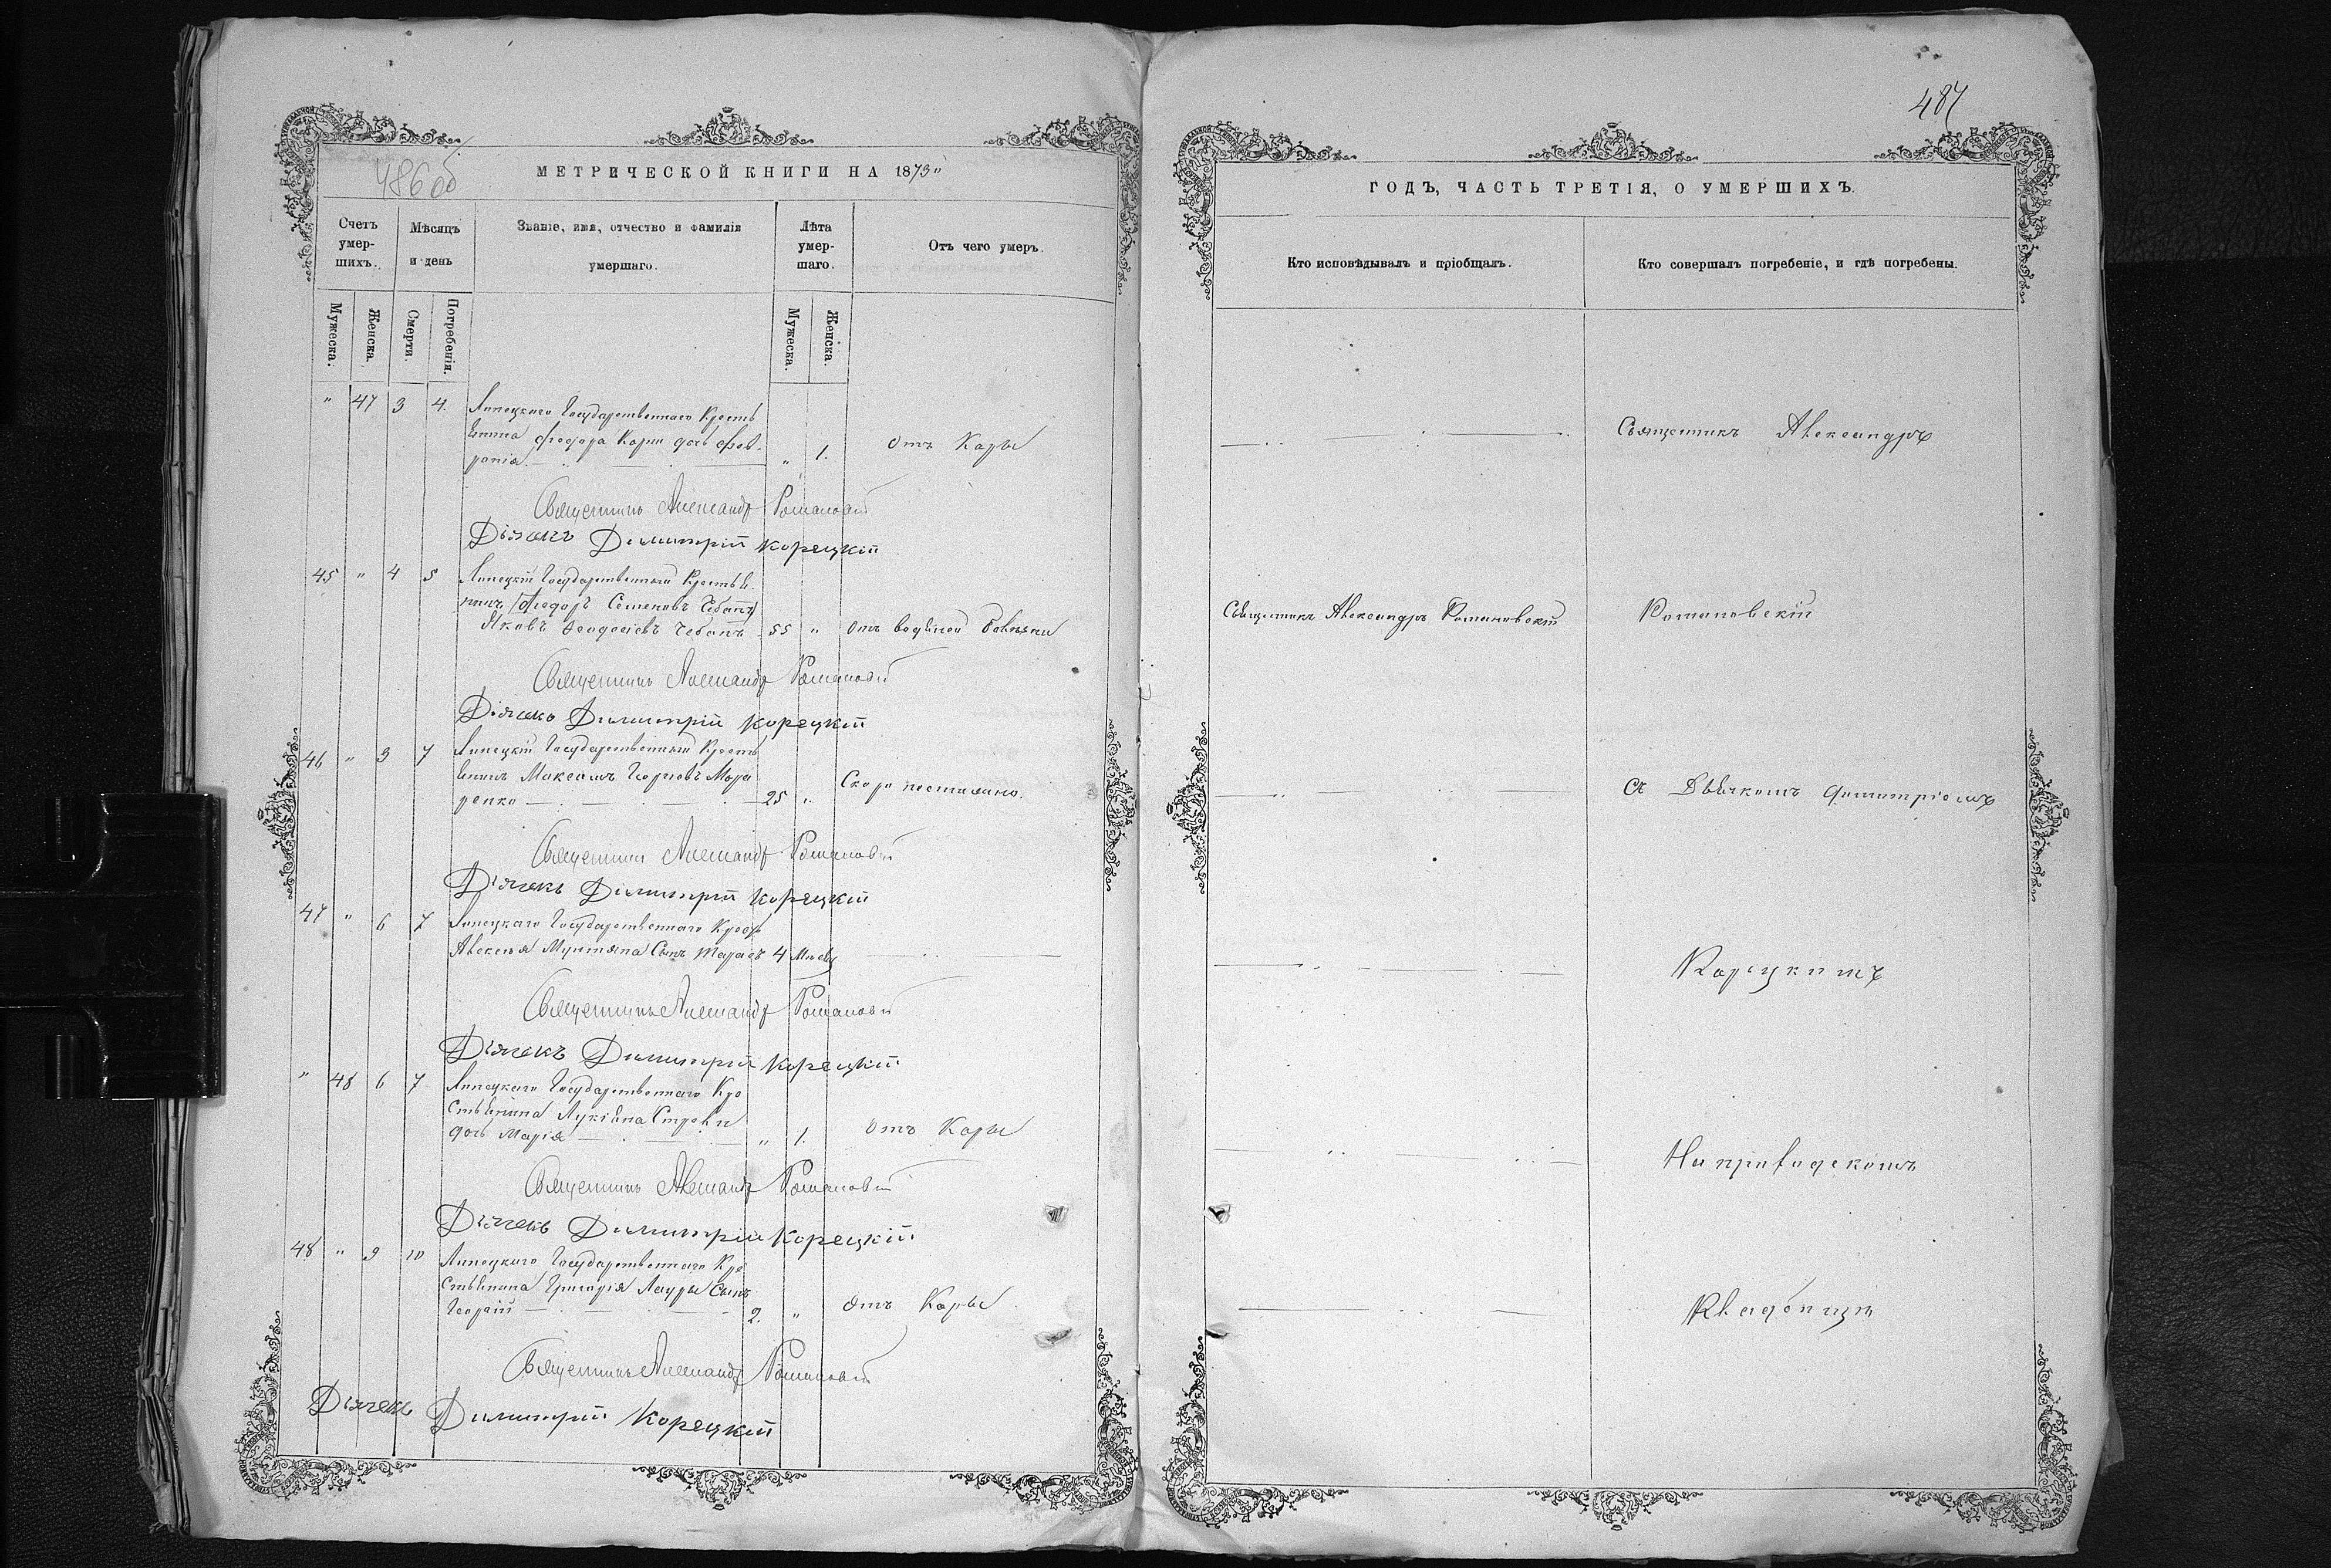 486 об
МЕТРИЧЕСКОЙ КНИГИ НА 1873
Счетъ умерших.
Мѣсяцъ и день
Званіе, имя, отчество и фамилія умершаго.
Лѣта умершаго.
Отъ чего умеръ.
Мужеска.
Женска.
Смерти.
Погребенія.
Мужеска.
Женска.
" 47 3 4. Липецкаго Государственнаго Кресть
янина Федора Кори дочь Фев
ронія „ 1. отъ Кары
Священникъ Александр Романовскій
Дѣячекъ Димитрій Корецкій
45 " 4 5 Липецкій Государственный Крестья
нинъ (Федоръ Семеновъ Чебанъ)
Яковъ Феодосіевъ Чебанъ 55 " Отъ водяной болѣзни
Священникъ Александр Романовскій
Дѣячекъ Димитрій Корецкій
46 " 3 7 Липецкій Государственный Кресть
янинъ Максимъ Георгіевъ Мора
ренко 25 „ Скоропостижно.
Священникъ Александр Романовскій
Дѣячекъ Димитрій Корецкій
47 " 6 7 Липецкаго Государственнаго Крест
Алексѣя Мунтяна Сынъ Тарасъ 4 Мѣсяц
Священникъ Александр Романовскій
Дѣячекъ Димитрій Корецкій
" 48 6 7 Липецкаго Государственнаго Кре
стьянина Лукіяна
дочь Марія „ 1. отъ Кары
Священникъ Александр Романовскій
Дѣячекъ Димитрій Корецкій
48 " 9 10 Липецкаго Государственнаго Кре
стьянина Григорія Лауры Сынъ
Георгій 2. " Отъ Кары
Священникъ Александр Романовскій
Дѣячекъ Димитрій Корецкій
487
ГОДЪ, ЧАСТЬ ТРЕТІЯ, О УМЕРШИХЪ.
Кто исповѣдывалъ и пріобщалъ.
Кто совершалъ погребеніе, и гдѣ погребены.
Священникъ Александръ
Священникъ Александръ Романовскій
Романовскій
съ Дѣячкомъ Димитріемъ
Корецкимъ
На приходскомъ
Кладбищѣ